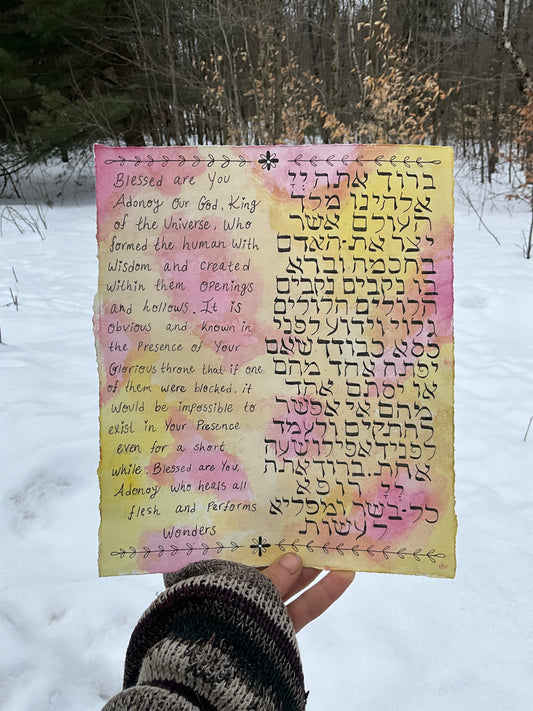 Blessed are You
Adonoy Our God, King
of the Universe, Who
formed the human With
Wisdom and created
Within them openings
and hollows. It is
obvious and known in
the Presence of Your
Glorious throne that if one
of them were blocked, it
Would be impossible to
exist in Your Presence
even for a short
while. Blessed are You,
Adonoy Who heals all
flesh and Performs
Wonders
ברוך אתה יְיָ
אלהינו מלך
העולם אשר
יצר את-האדם
בחכמה וברא
בו נקבים נקבים
חלולים חלולים
גלוי וידוע לפני
כסא כבודך שאם
יפתח אחד מהם
או יסתם אחד
מהם אי אפשר
להתקים ולעמד
לפניך אפילו שעה
אחת. ברוך אתה
יְיָ רופא
כל-בשר ומפליא
לעשות